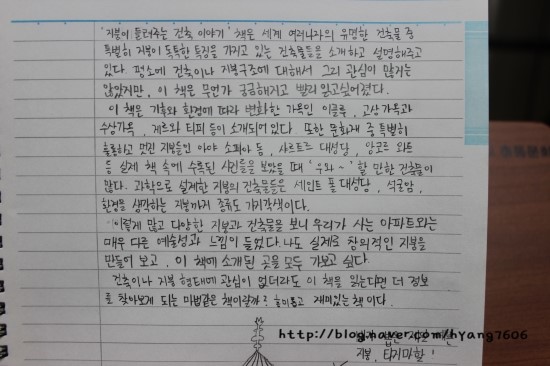 '지붕이 들려주는 건축 이야기' 책은 세계 여러나라의 유명한 건축물 중
특별히 지붕이 독특한 특징을 가지고 있는 건축물들을 소개하고 설명해주고
있다. 평소에 건축이나 지붕구조에 대해서 그리 관심이 많지는
않았지만, 이 책은 무언가 궁금해지고 빨리 읽고싶어졌다.
이 책은 기후와 환경에 따라 변화한 가옥인 이글루, 고상가옥과
수상가옥, 게르와 티피 등이 소개되어 있다. 또한 문화재 중 특별히
훌륭하고 멋진 지붕들인 아야 소피아 등, 샤르트르 대성당, 앙코르 와트
등 실제 책 속에 수록된 사진들을 보았을 때 '우와~' 할 만한 건축물이
많다. 과학으로 설계한 지붕의 건축물들은 세인트 폴 대성당, 석굴암,
환경을 생각하는 지붕까지 종류도 가지각색이다.
이렇게 많고 다양한 지붕과 건축물을 보니 우리가 사는 아파트와는
매우 다른 예술성과 느낌이 들었다. 나도 실제로 창의적인 지붕을
만들어 보고, 이 책에 소개된 곳을 모두 가보고 싶다.
건축이나 지붕 형태에 관심이 없더라도 이 책을 읽는다면 더 정보
를 찾아보게 되는 마법같은 책이랄까? 흥미롭고 재미있는 책이다.
http://blog.naver.com/hyang7606
지붕, 티피마을!